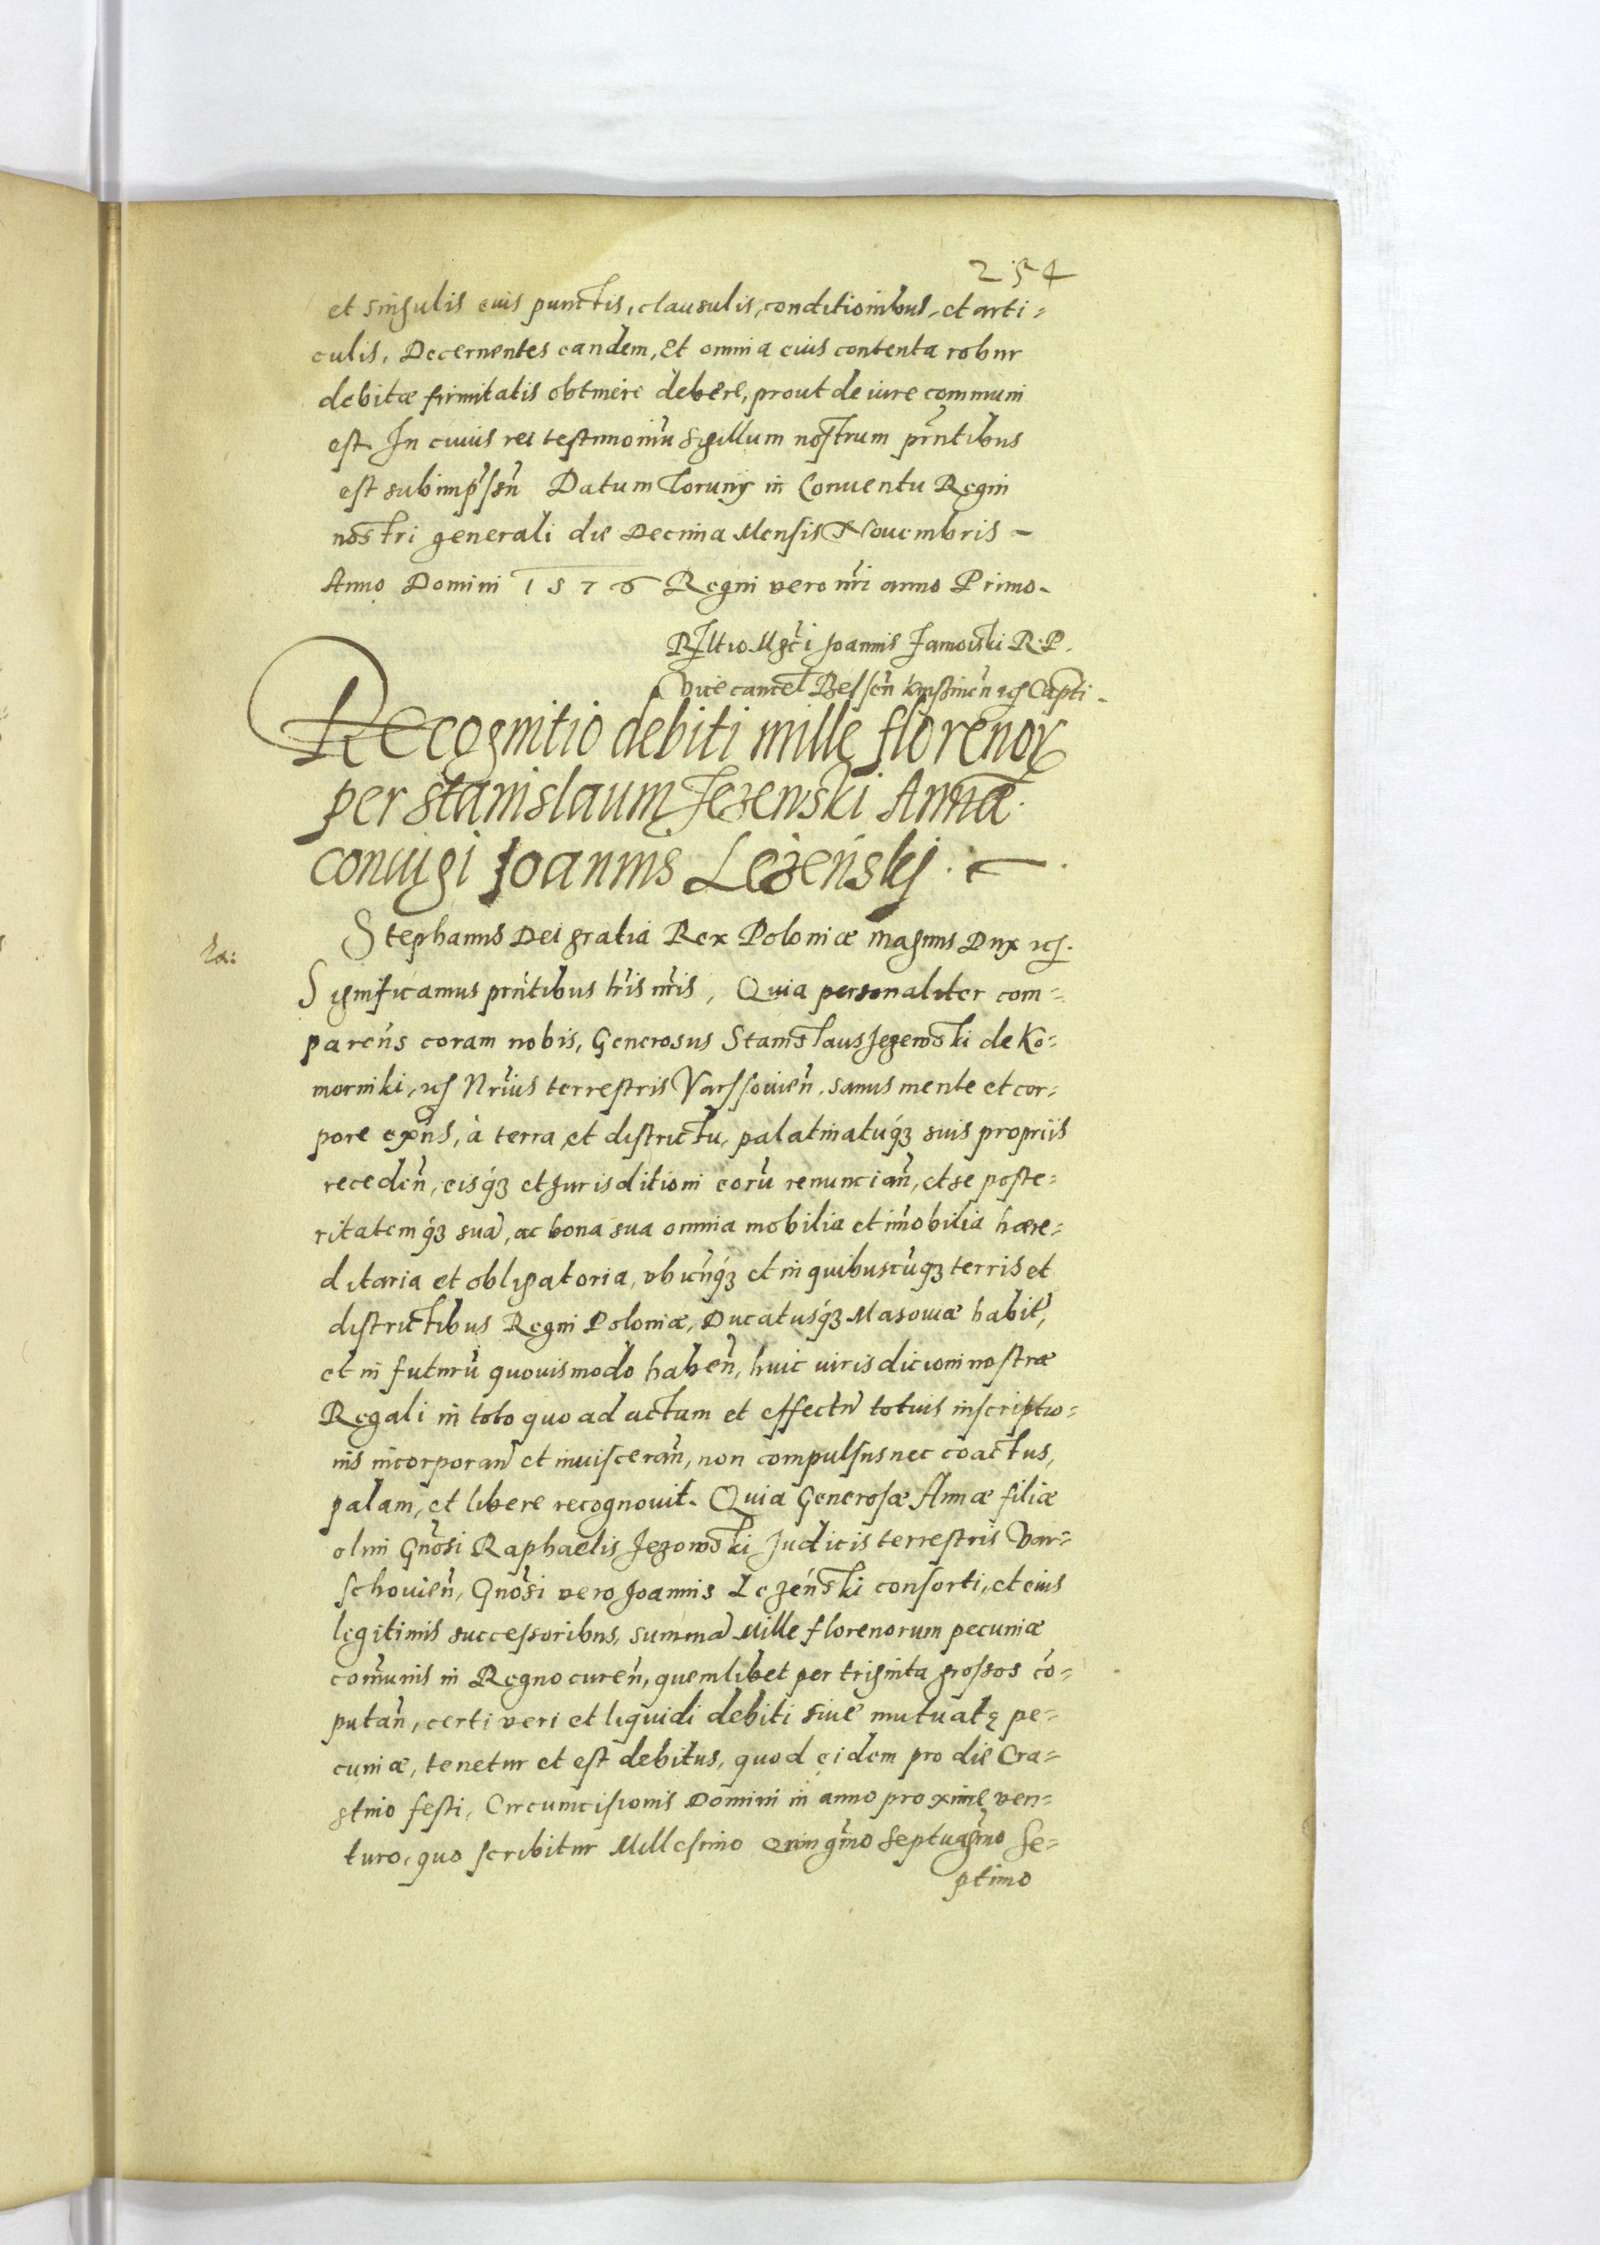 254
et singulis eius punctis, clausulis, conditionibus, et arti=
culis, Decernentes eandem, et omnia eius contenta robur
debitæ firmitatis obtinere debere, prout de iure communi
est. In cuius rei testimoniũ Sigillum nostrum pr̃ntibus
est subimp̃ssũ Datum Toruniȷ in Conuentu Regni
nostri generali die Decima Mensis Nouembris –
Anno Domini 1576 Regni vero nr̃i anno Primo.
Rltio Mgc̃i Joannis Zamoiski R. P.
Vicecancel Belseñ Capti.
Recognitio debiti mille florenoꝝ
per Stanislaum Jezewski Annæ
coniugi Joannis Leżeński.
Ra:
Stephanus Dei gratia Rex Poloniæ Magnus Dux ꝛcꝭ.
Significamus prñtibus lr̃is nr̃is, Quia personaliter com=
parens coram nobis, Generosus Stanislaus Jezewski de Ko=
morniki, ꝛcꝭ Nrĩus terrestris Varssouieñ, sanus mente et cor=
pore exñs, à terra et districtu, palatinatuqꝫ suis propriis
recedeñ, eisqꝫ et Jurisditioni eorũ renunciañ, et se poste=
ritatemqꝫ suã, ac bona sua omnia mobilia et im̃obilia hære=
ditaria et obligatoria, vbicũqꝫ et in quibuscũqꝫ terris et
districtibus Regni Poloniæ, Ducatusqꝫ Masouiæ habit̃,
et in futurũ quouismodo habeñ, huic iurisdicioni nostræ
Regali in toto quo ad actum et effectũ totius inscriptio=
nis incorporañ et inuisceran̄, non compulsus nec coactus,
palam, et libere recognouit. Quia Generosæ Annæ filiæ
olim Gnõsi Raphaelis Jezowski Judicis terrestris Var=
schouieñ, Gnõsi vero Joannis Leżenski consorti, et eius
legitimis successoribus, summã Mille florenorum pecuniæ
com̃unis in Regno cureñ, quemlibet per triginta grossos cõ=
putañ, certi veri et liquidi debiti siue mutuatę pe=
cuniæ, tenetur et est debitus, quod eidem pro die Cra=
stino festi, Circumcisionis Domini in anno proxime ven=
turo, quo scribitur Millesimo Quingm̃o Septuagm̃o Se=
ptimo